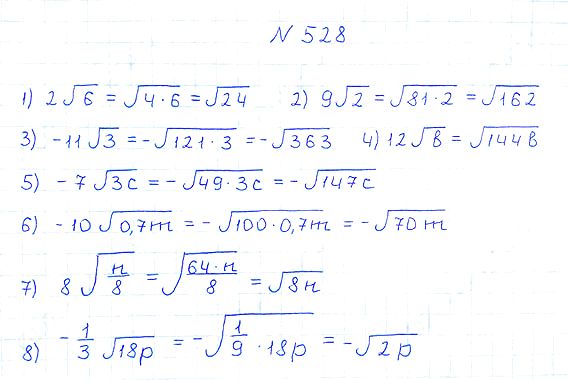 N 528
1) 2√6 = √4·6 = √24 2) 9√2 = √81·2 = √162
3) -11√3 = -√121·3 = -√363 4) 12√в = √144в
5) -7√3c = -√49·3c = -√147c
6) -10√0,7m = -√100·0,7m = -√70m
7) 8√н/8 = √64·н/8 = √8н
8) -1/3√18p = -√1/9·18p = -√2p